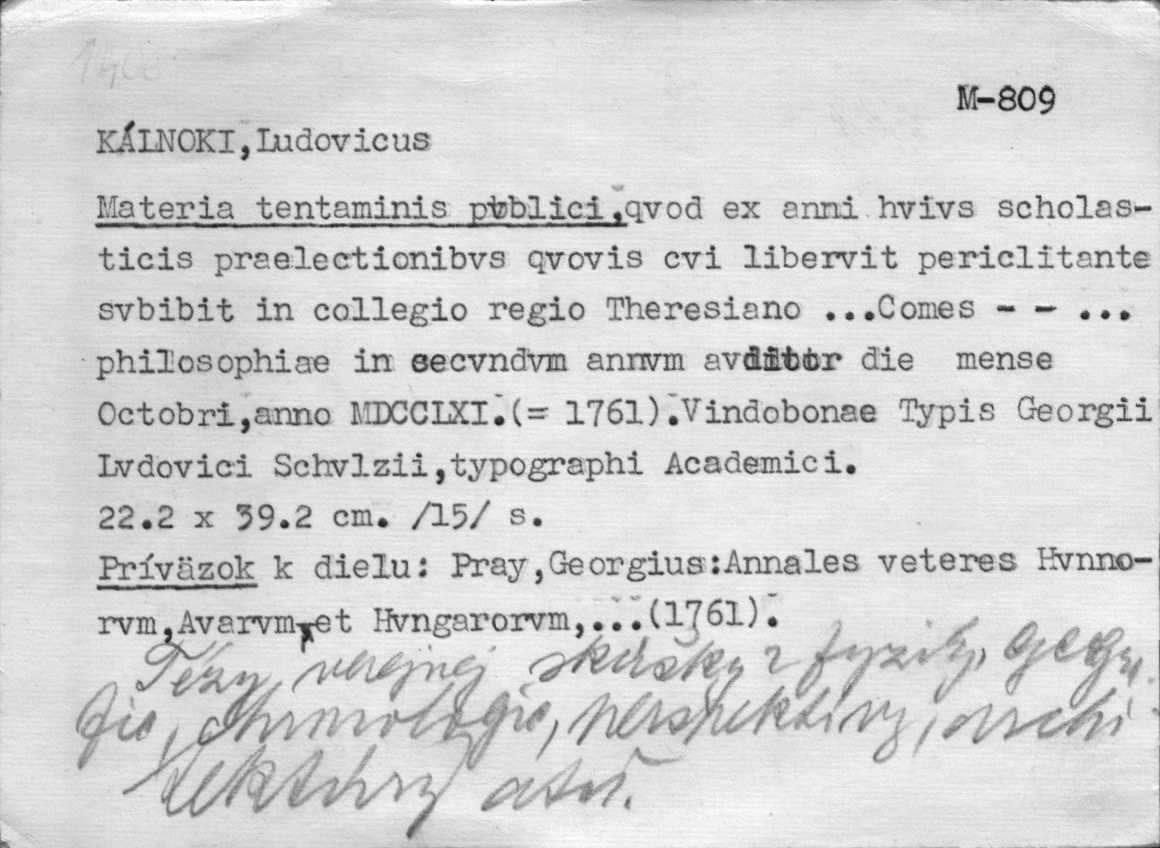 M-809
KÁLNOKI,Ludovicus
Materia tentaminis pvblici,qvod ex anni hvivs scholas-
ticis praelectionibvs qvovis cvi libervit periclitante
svbibit in collegio regio Theresiano ...Comes - - ...
philosophiae in secvndvm annvm avditor die mense
Octobri,anno MDCCLXI.(= 1761).Vindobonae Typis Georgii
Lvdovici Schvlzii,typographi Academici.
22.2 x 39.2 cm. /15/ s.
Príväzok k dielu: Pray,Georgius:Annales veteres Hvnno-
rvm,Avarvm,et Hvngarorvm,...(1761).
Tézy verejnej skúšky z fyziky, geogra-
fie, chronologie, perspektívy, archi-
tektúry atď.